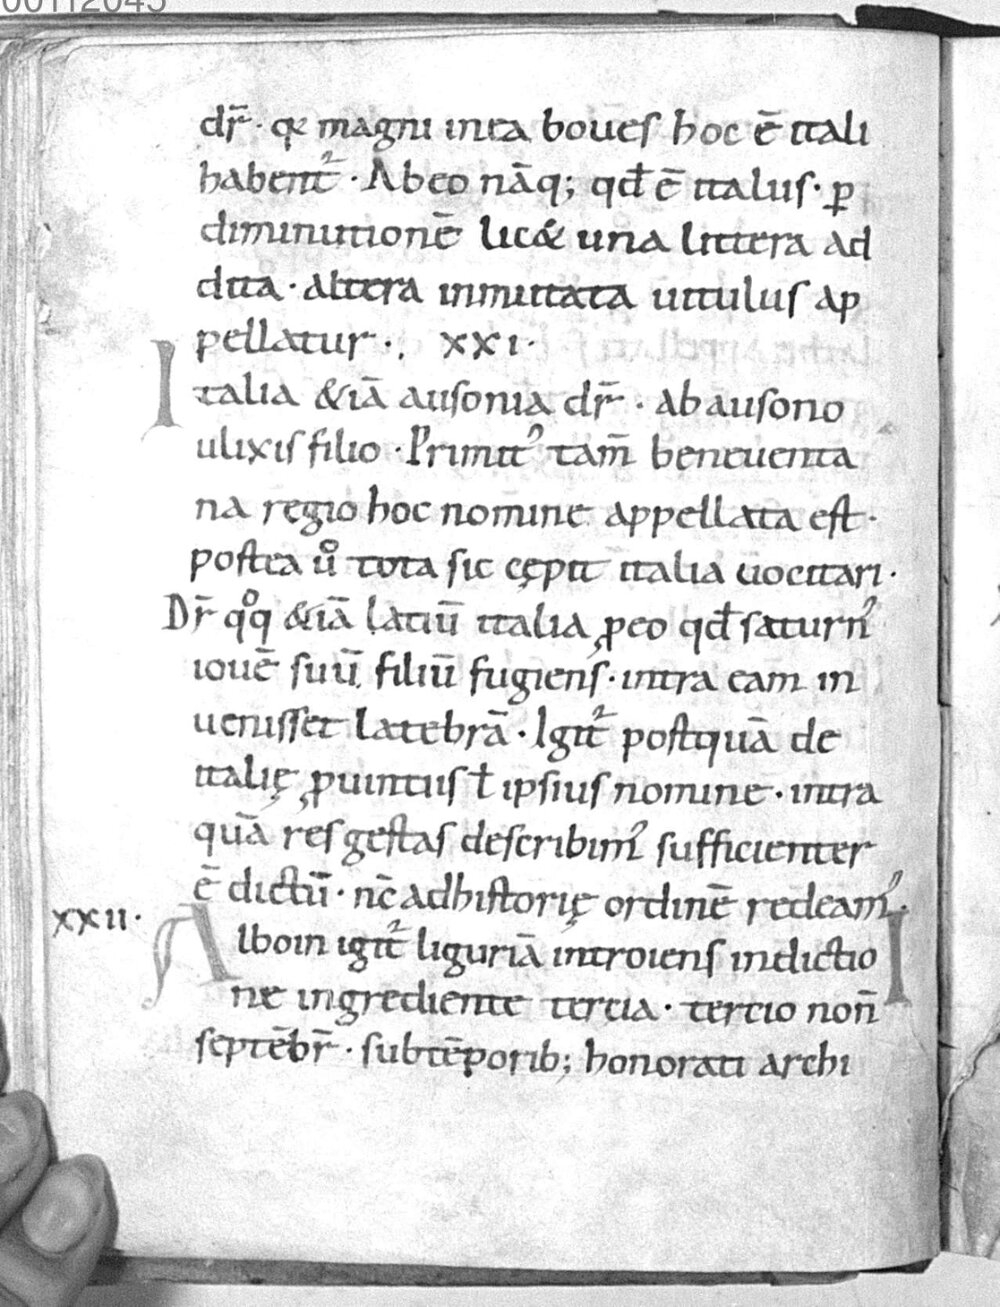 00112645
dr̄· qꝛ magni in ea boues hoc ē itali
habent᷑· Ab eo nāq; qđ ē italus· ꝑ
diminutionē lic& una littera ad
dita· altera inmutata uitulus ap
pellatur·, xxi·
Italia &iā ausonia dr̄· ab ausono
ulixis filio· Primit᷒ tam̄ beneuenta
na regio hoc nomine appellata est·
postea ů tota sic cępit italia uocitari·
Dr̄ qͦq &iā latiū italia, ꝓeo qđ saturn᷒
iouē suū filiū fugiens· intra eam in
uenisset latebrā· Igit᷑ postquā de
italię ꝓuintiis ł ipsius nomine· intra
quā res gestas describim᷒ sufficienter
ē dictū· nc̄ ad historię ordinē redeam᷒·
xxii· Alboin igit᷑ liguriā introiens indictio
ne ingrediente tercia· tertio non̄
septēbr̄· sub tēporib; honorati archi